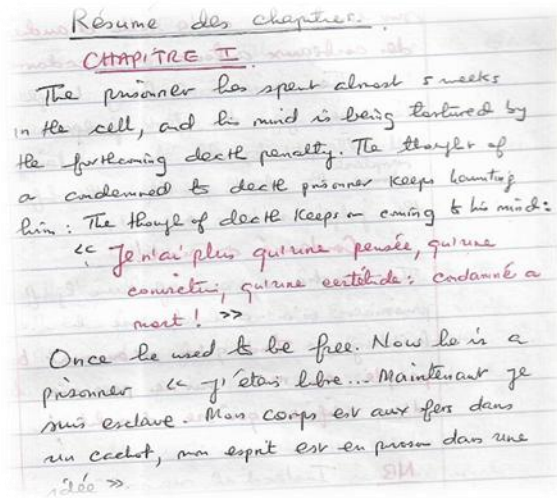 Résume des chapitres.
CHAPITRE II.
The prisonner has spent almost 5 weeks
in the cell, and his mind is being tortured by
the forthcoming decth penalty. The thought of
a condemned to decth prisonner keeps haunting
him : The though of decth keeps on coming to his mind :
<< Je n'ai plus qu'une pensée, qu'une
conviction, qu'une certitude : condamné a
mort ! >>
Once he used to be free. Now he is a
prisonner << J'étais libre... Maintenant je
suis esclave. Mon corps est aux fers dans
un cachot, mon esprit est en prison dans une
idée >>.
NB